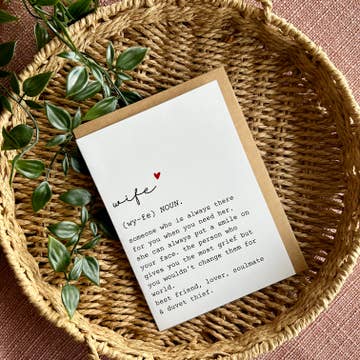 wife
(wy-fe) NOUN.
someone who is always there
for you when you need her.
she can always put a smile on
your face. the person who
gives you the most grief but
you wouldn't change them for
world.
best friend, lover, soulmate
& duvet thief.